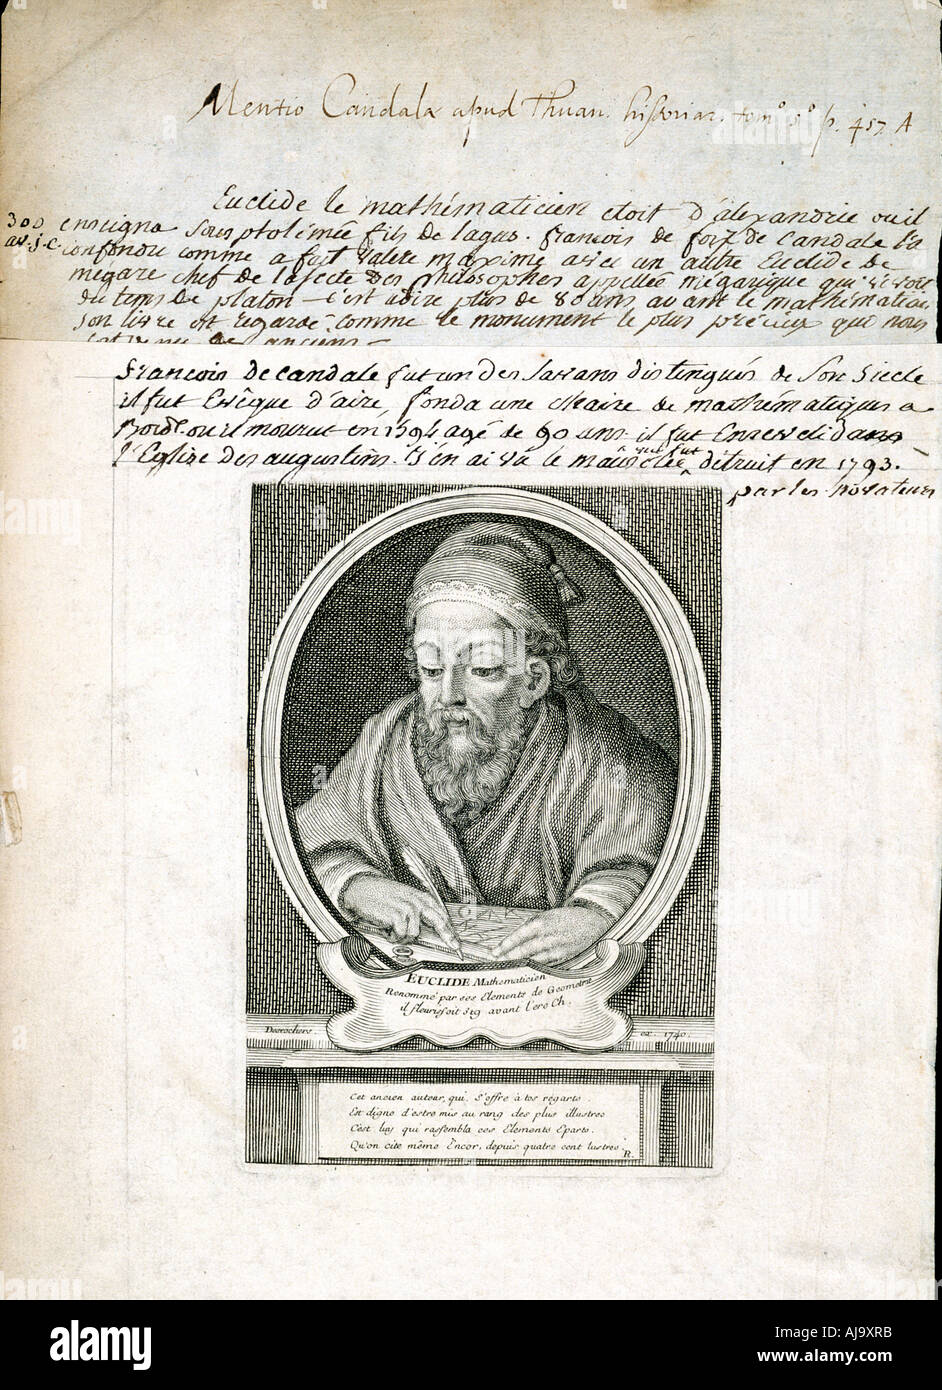 Mentio Candalæ apud Thuan. historiar. tom° 5° p. 457. A
Euclide le mathématicien etoit d'alexandrie ou il
300 enseigna Sous ptolémée fils de lagus. françois de foix de Candale l'a
av. j. c. confondu comme a fait Valere maxime avec un autre Euclide de
megare chef de la secte des philosophes appellée mégarique qui vivoit
du tems de platon - c'est a dire plus de 80 ans avant le mathématicien
son livre est regardé comme le monument le plus précieux que nous
de anciens -
françois de candale fut un des savans distingués de Son Siecle
il fut Evêque d'aire, fonda une chaire de mathématiques a
Bord. ou il mourut en 1594 agé de 90 ans. il fut Enseveli dans
l'Eglise des augustins. j'en ai vu le mausolée qui fut détruit en 1793.
par les novateurs
EUCLIDE Mathematicien
Renommé par ses Elemens de Geometrie
il fleurissoit 319 avant l'ere Ch.
Desrochers ex. 1740.
Cet ancien auteur, qui S'offre à tes régards.
Est digne d'estre mis au rang des plus illustres
C'est luy qui rassembla ces Elements Epars.
Qu'on cite même Encor, depuis quatre cent lustres
R.
alamy
Image ID: AJ9XRB
www.alamy.com